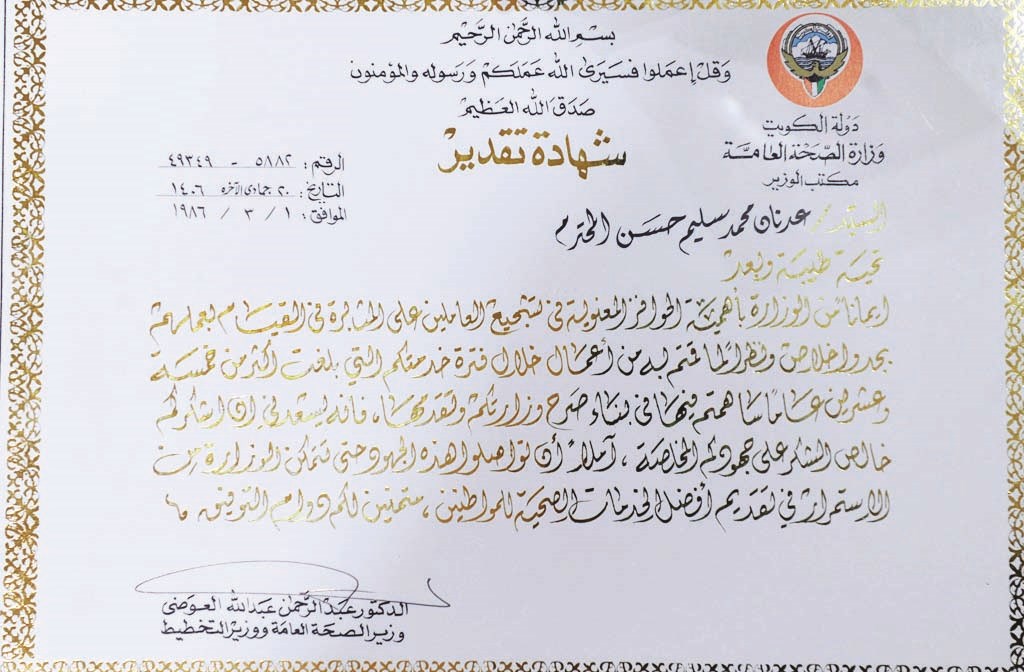 بسم الله الرحمن الرحيم
وقل إعملوا فسيرى الله عملكم ورسوله والمؤمنون
صدق الله العظيم
شهادة تقدير
دولة الكويت
وزارة الصحة العامة
مكتب الوزير
الرقم : ٥٨٨٢ - ٤٩٣٤٩
التاريخ : ٢٠ جمادى الآخره ١٤٠٦
الموافق : ١ / ٣ / ١٩٨٦
السيد / عدنان محمد سليم حسن المحترم
تحية طيبة وبعد
ايمانا من الوزارة بأهمية الحوافز المعنوية في تشجيع العاملين على المثابرة في القيام بعملهم
بجد واخلاص ونظرا لما قمتم به من أعمال خلال فترة خدمتكم التي بلغت أكثر من خمسة
وعشرين عاما ساهمتم فيها في بناء صرح وزارتكم وتقدمها ، فانه يسعدني ان اشكركم
خالص الشكر على جهودكم المخلصة ، آملا أن تواصلوا هذه الجهود حتى تتمكن الوزارة من
الاستمرار في تقديم أفضل الخدمات الصحية للمواطنين ، متمنين لكم دوام التوفيق
الدكتور عبد الرحمن عبدالله العوضي
وزير الصحة العامة ووزير التخطيط